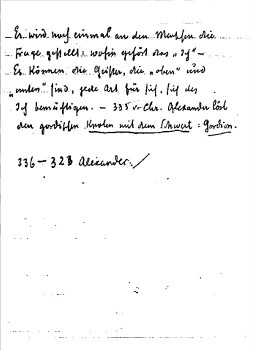 Es wird noch einmal an den Menschen die
Frage gestellt: wohin gehört das "Ich" –
Es können die Geister, die "oben" und
"unten" sind, jede Art für sich, sich des
Ich bemächtigen. – 335 v. Chr. Alexander löst
den gordischen Knoten mit dem Schwert : Gordion.
336 – 323 Alexander /